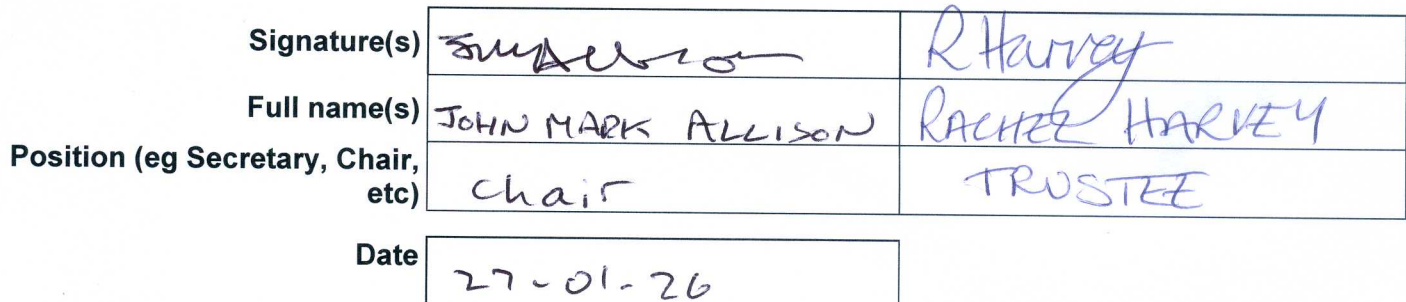 Signature(s) JMAllison R Harvey
Full name(s) JOHN MARK ALLISON RACHEL HARVEY
Position (eg Secretary, Chair,
etc) Chair TRUSTEE
Date 27-01-26